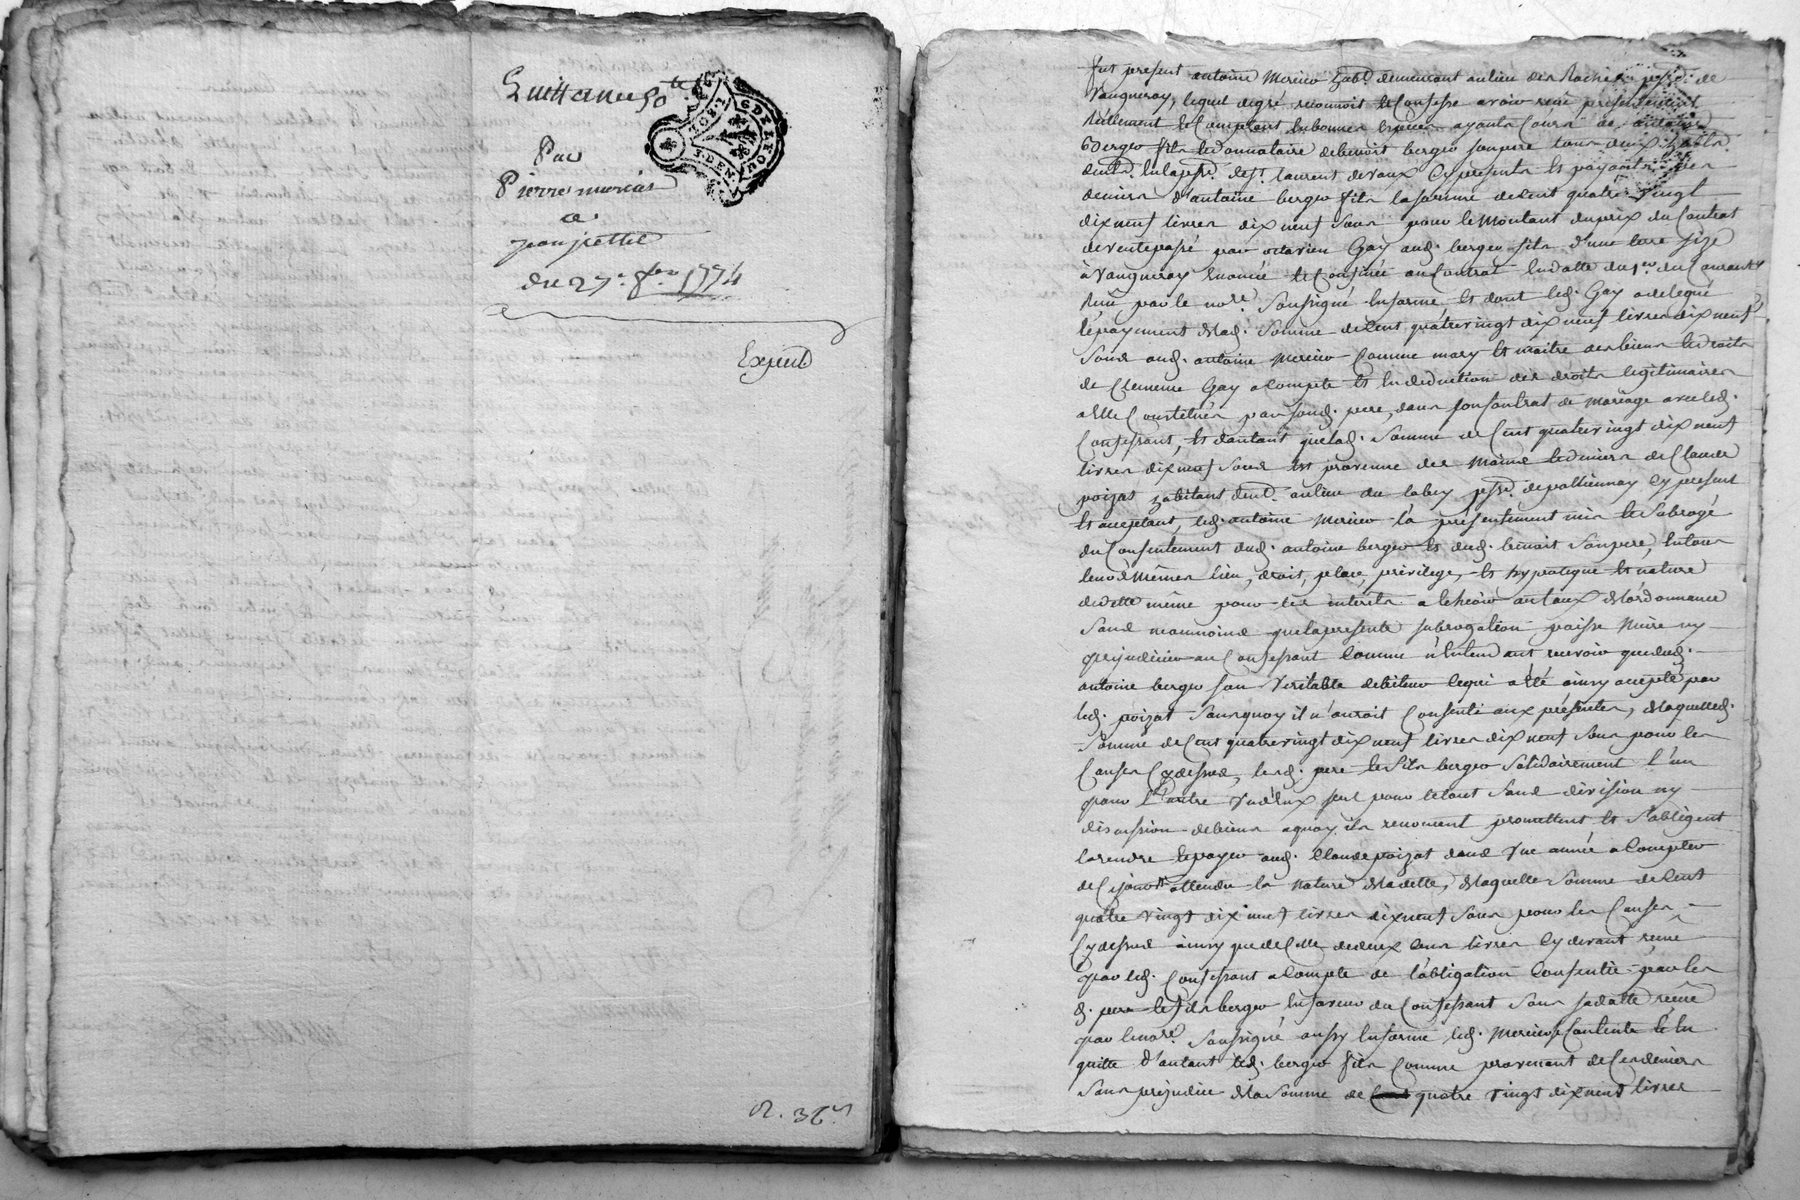 Quittance 50.tt
Par
Pierre murias
a
jean jettet
du 27.e 8.bre 1774
Expedié
fut present antoine Mercier habt. demeurant au lieu des Roches par.sse de
Vaugneray, lequel de gré, reconnoit et Confesse avoir recû presentement
Reellement et Comptant en bonnes Especes ayants Cours de antoine
Berger fils et donnataire de benoit berger son pere tous deux habts.
en lad. par.sse de s.t laurent de vaux Cy presents et payants des
deniers d'antoine berger fils la somme de Cent quatre Vingt
dix neuf livres dix neuf sous pour le Montant du prix du Contrat
de vente passé par octavien Gay aud. berger fils d'une terre size
à Vaugneray Enoncée et Confinée au Contrat En datte du 1.er du Courant
Recû par le no.re Soussigné En forme Et dont led. Gay a delegué
le payement de lad. Somme de Cent quatrevingt dix neuf livres dix neuf
sous aud. antoine Mercier Comme mary Et maitre des biens et droits
de Clemence Gay a Compte Et En deduction des droits legitimaires
a Elle Constitués par son d. pere, dans son Contrat de Mariage avec led.
Confessant, Et d'autant que lad. Somme de Cent quatrevingt dix neuf
livres dix neuf sous Est provenue des Mains et deniers de Claude
poizat habitant au lieu du par.sse de pollionnay Cy present
Et acceptant, led. antoine Mercier l'a présentement mis et Subrogé
du Consentement dud. antoine berger Et dud. benoit Son pere, En tous
leurs Mêmes lieu, droit, place, privilege, Et hypoteque Et nature
de dette même pour les interets a Echeoir au taux de l'ordonnance
Sans neanmoins que la presente subrogation puisse Nuire ny
prejudicier au Confessant Comme n'Entendant recevoir que dud.
antoine berger son Veritable debiteur Ce qui a été ainsy accepté par
led. poizat Sans quoy il n'auroit Consenti aux présentes, de laquelle d.
Somme de Cent quatrevingt dix neuf livres dix neuf sous pour les
Causes Cy dessus, les d. pere et fils berger Solidairement l'un
pour l'autre Un d'Eux seul pour le tout Sans division ny
discussion de biens a quoy ils renoncent promettent Et S'obligent
la rendre Et payer aud. Claude poizat dans Une année a Compter
de Ce jour attendu la Nature de la dette, de laquelle Somme de Cent
quatre Vingt dix neuf livres dix neuf sous pour les Causes
Cy dessus ainsy que de Celle de deux Cens livres Cy devant recûe
par led. Confessant a Compte de l'obligation Consentie par les
d. pere et fils berger En faveur du Confessant Sous sa datte recûe
par le no.re Soussigné aussy En forme led. Mercier se Contente Et En
quitte d'autant led. berger fils Comme provenant de Ces deniers
Sans prejudice de la Somme de quatre Vingt dix neuf livres